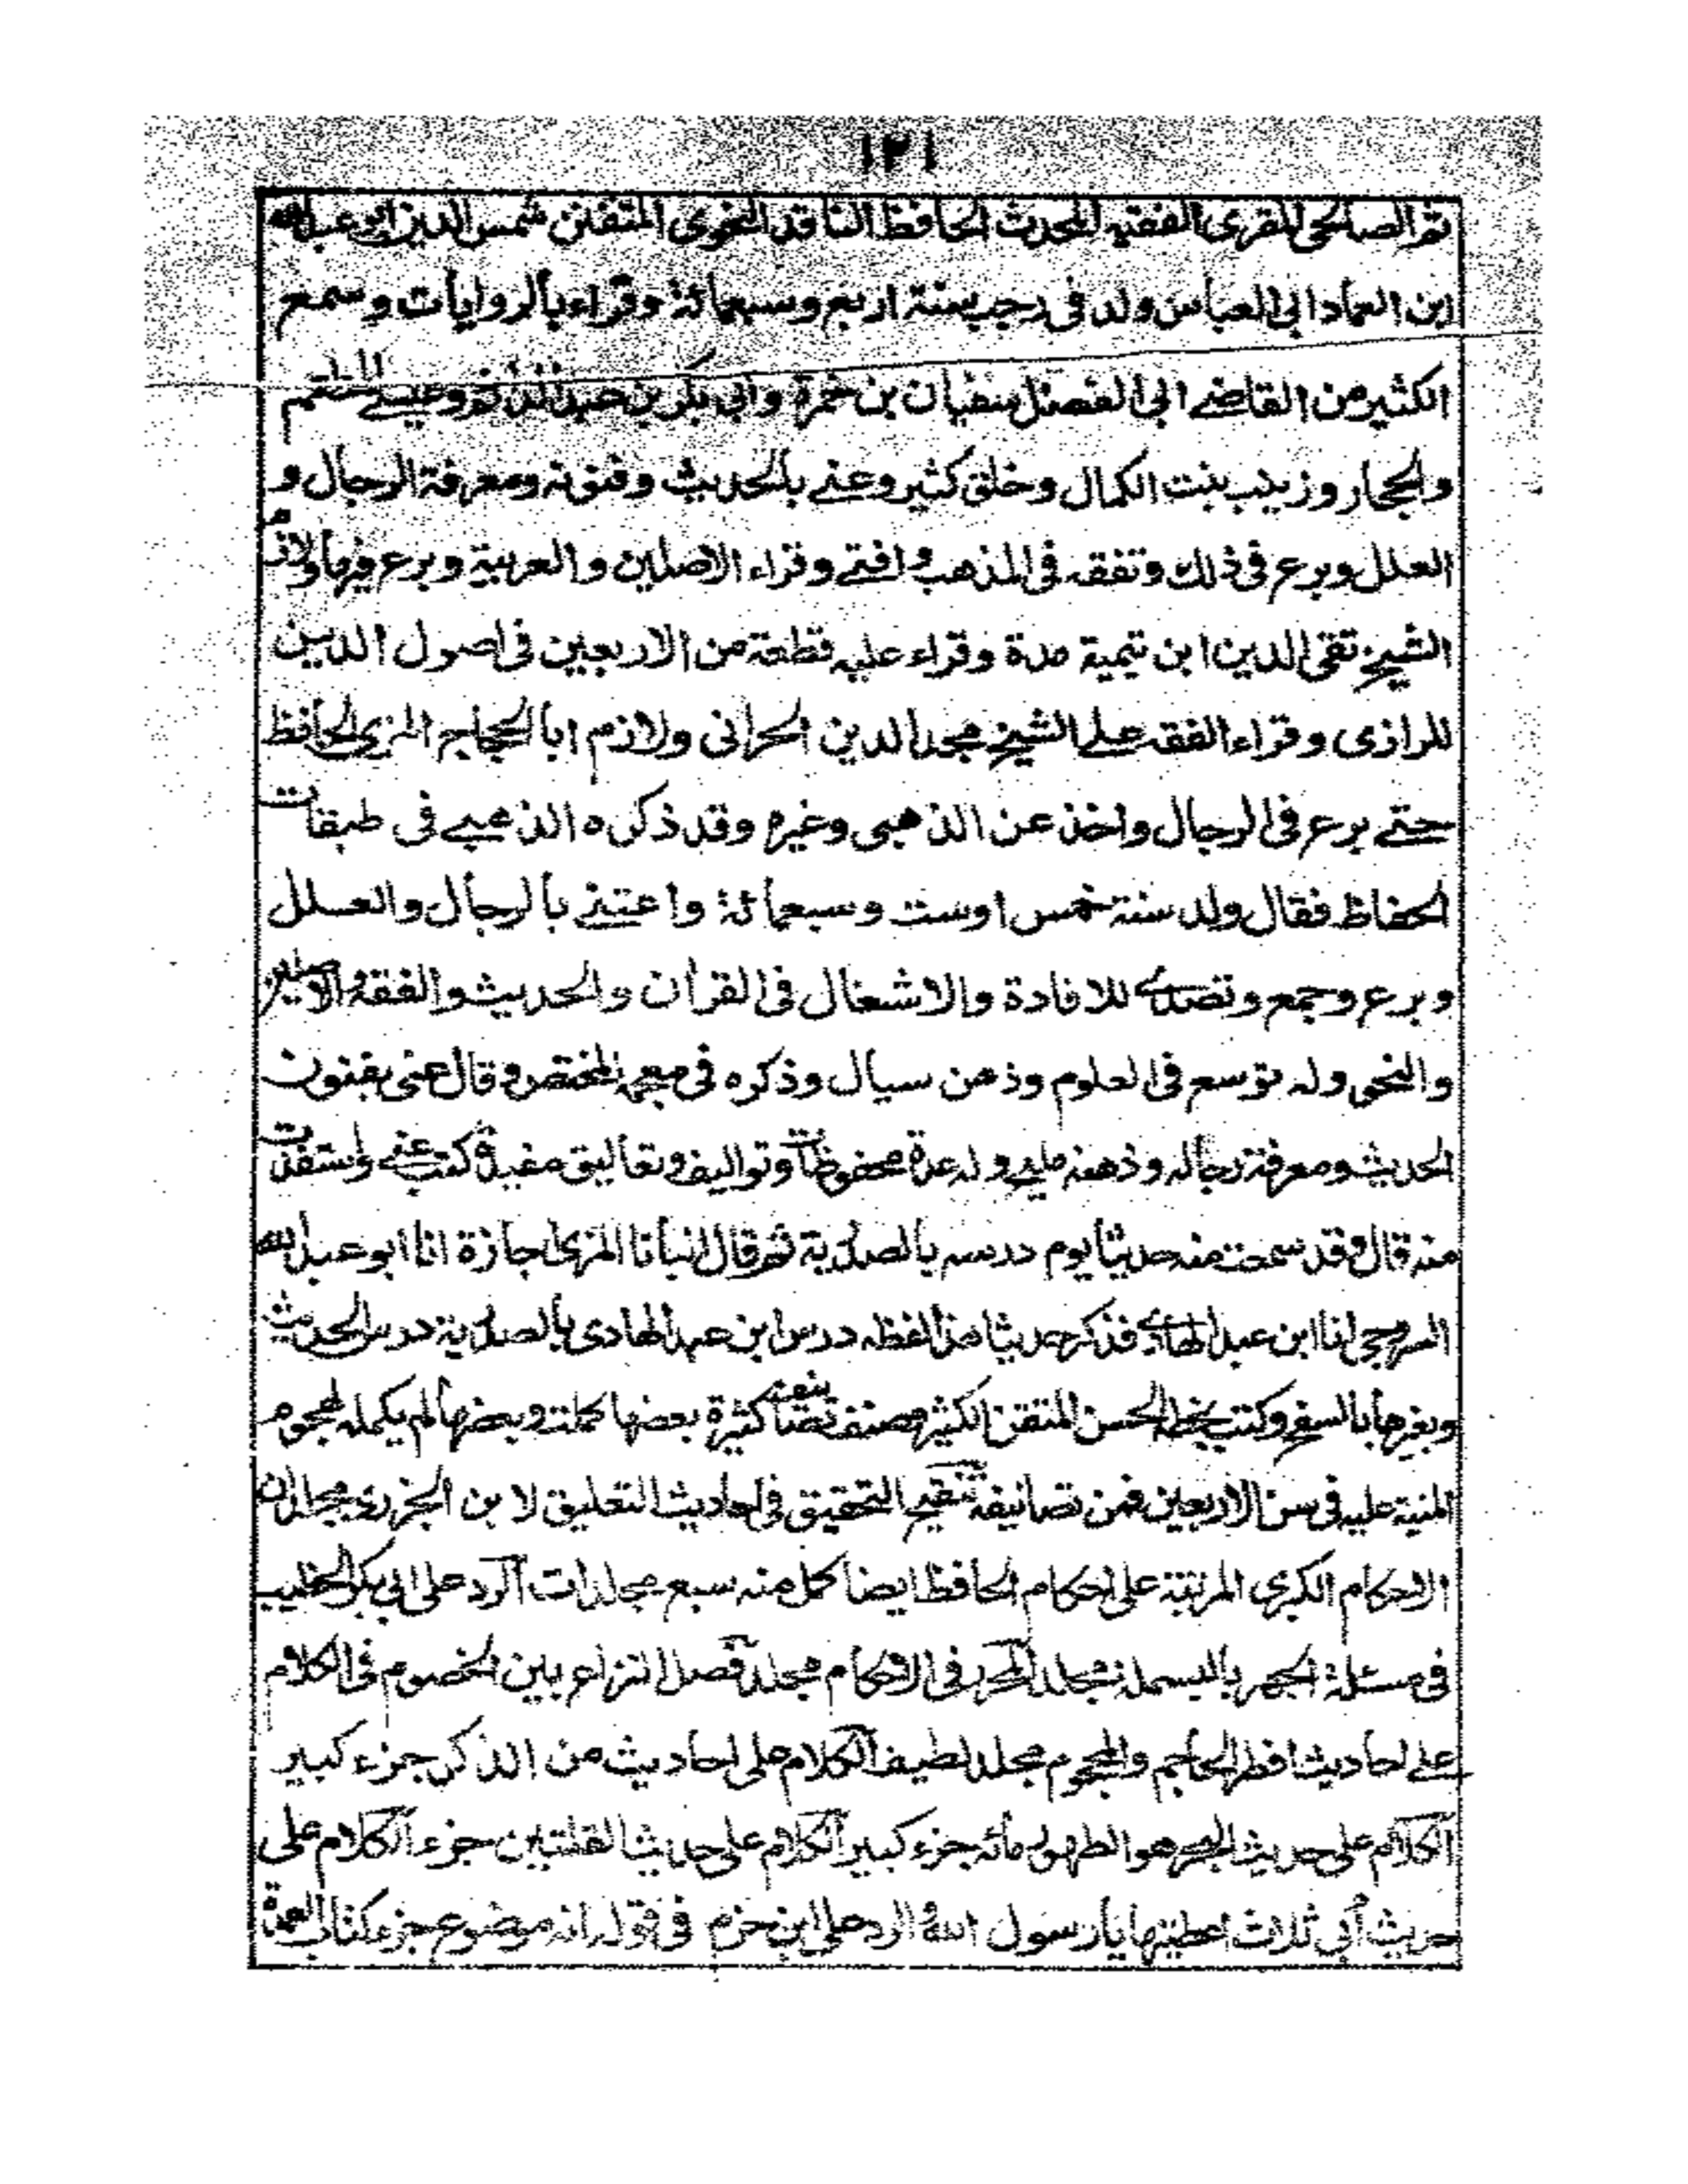 ١٢١
ثم الصالحى المقرى الفقيه المحدث الحافظ الناقد النحوى المتفنن شمس الدين ابو عبد الله
ابن العماد ابى العباس ولد فى رجب سنة اربع وسبعمائة وقراء بالروايات وسمع
الكثير من القاضے ابى الفضل سفيان بن حمزة وابى بكر بن عبد الدائم وعيسے المطعم
والحجار وزينب بنت الكمال وخلق كثير وعنے بالحديث وفنونه ومعرفة الرجال و
العلل وبرع فى ذلك وتفقه فى المذهب وافتے وقراء الاصلين والعربية وبرع فيها ولازم
الشيخ تقى الدين ابن تيمية مدة وقراء عليه قطعة من الاربعين فى اصول الدين
للرازى وقراء الفقه علے الشيخ مجد الدين الحرانى ولازم ابا الحجاج المزى الحافظ
حتے برع فى الرجال واخذ عن الذهبى وغيره وقد ذكره الذهبے فى طبقات
الحفاظ فقال ولد سنة خمس اوست وسبعمائة واعتنے بالرجال والعلل
وبرع وجمع وتصدے للافادة والاشغال فى القرأن والحديث والفقه والاصلين
والنحو وله توسع فى العلوم وذهن سيال وذكره فى معجمه المختص وقال عنى بفنون
الحديث ومعرفة رجاله وذهنه مليح وله عدة محفوظات وتواليف وتعاليق مفيدة كتب عنے واستفدت
منه قال وقد سمعت منه حديثا يوم درسه بالصدرية ثم قال انبأنا المزى اجازة انا ابو عبد الله
السروجى انا ابن عبد الهادے فذكر حديثا هذا لفظه درس ابن عبد الهادى بالصدرية درس الحديث
وبغيرها بالسفح وكتب بخطه الحسن المتقن الكثير وصنف تصانيف كثيرة بعضها كملت وبعضها لم يكمله لهجوم
المنية عليه فى سن الاربعين فمن تصانيفه تنقيح التحقيق فى احاديث التعليق لابن الجزرى مجلدان
الاحكام الكبرى المرتبة على احكام الحافظ ايضا كمل منه سبع مجلدات الرد على ابى بكر الخطيب
فى مسئلة الجهر بالبسملة مجلد المحرر فى الاحكام مجلد فصل النزاع بين الخصوم فى الكلام
علے احاديث افطر الحاجم والمحجوم مجلد لطيف الكلام على احاديث من الذكر جزء كبير
الكلام على حديث البحر هو الطهور مأئه جزء كبير الكلام على حديث القلتين جزء الكلام على
حديث أبى ثلاث اعطيتها يا رسول الله الرد على ابن حزم فى قوله انه موضوع جزء كتاب العمدة